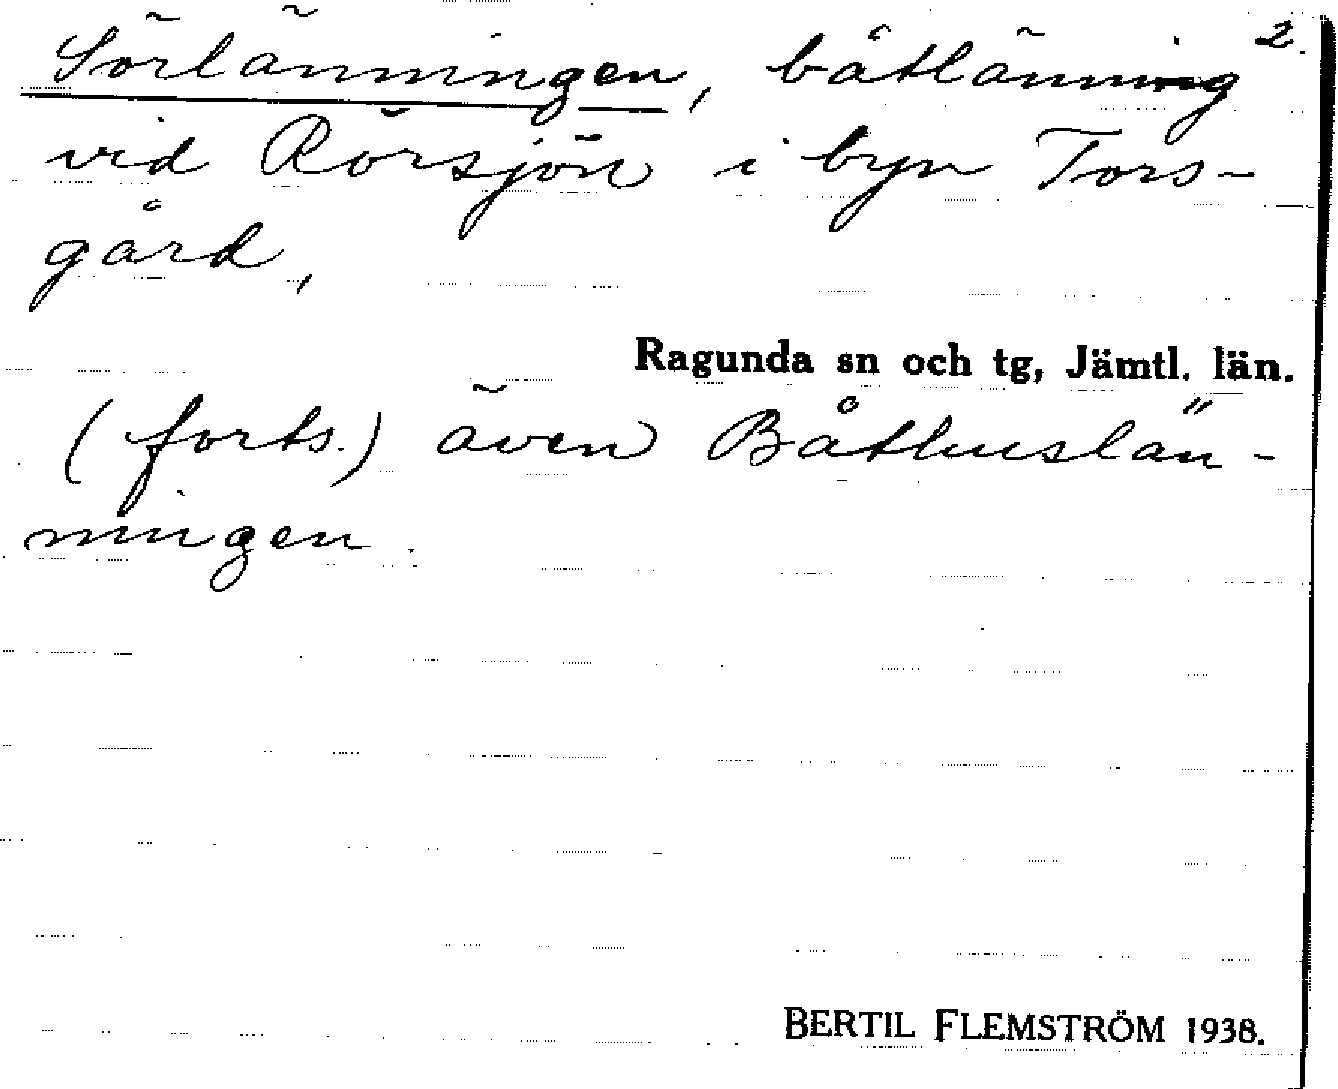 2.
Sörlänningen, båtlänning
vid Rörsjön i byn Tors-
gård,
Ragunda sn och tg, Jämtl. län.
(forts.) även Båthuslän-
ningen.
BERTIL FLEMSTRÖM 1938.